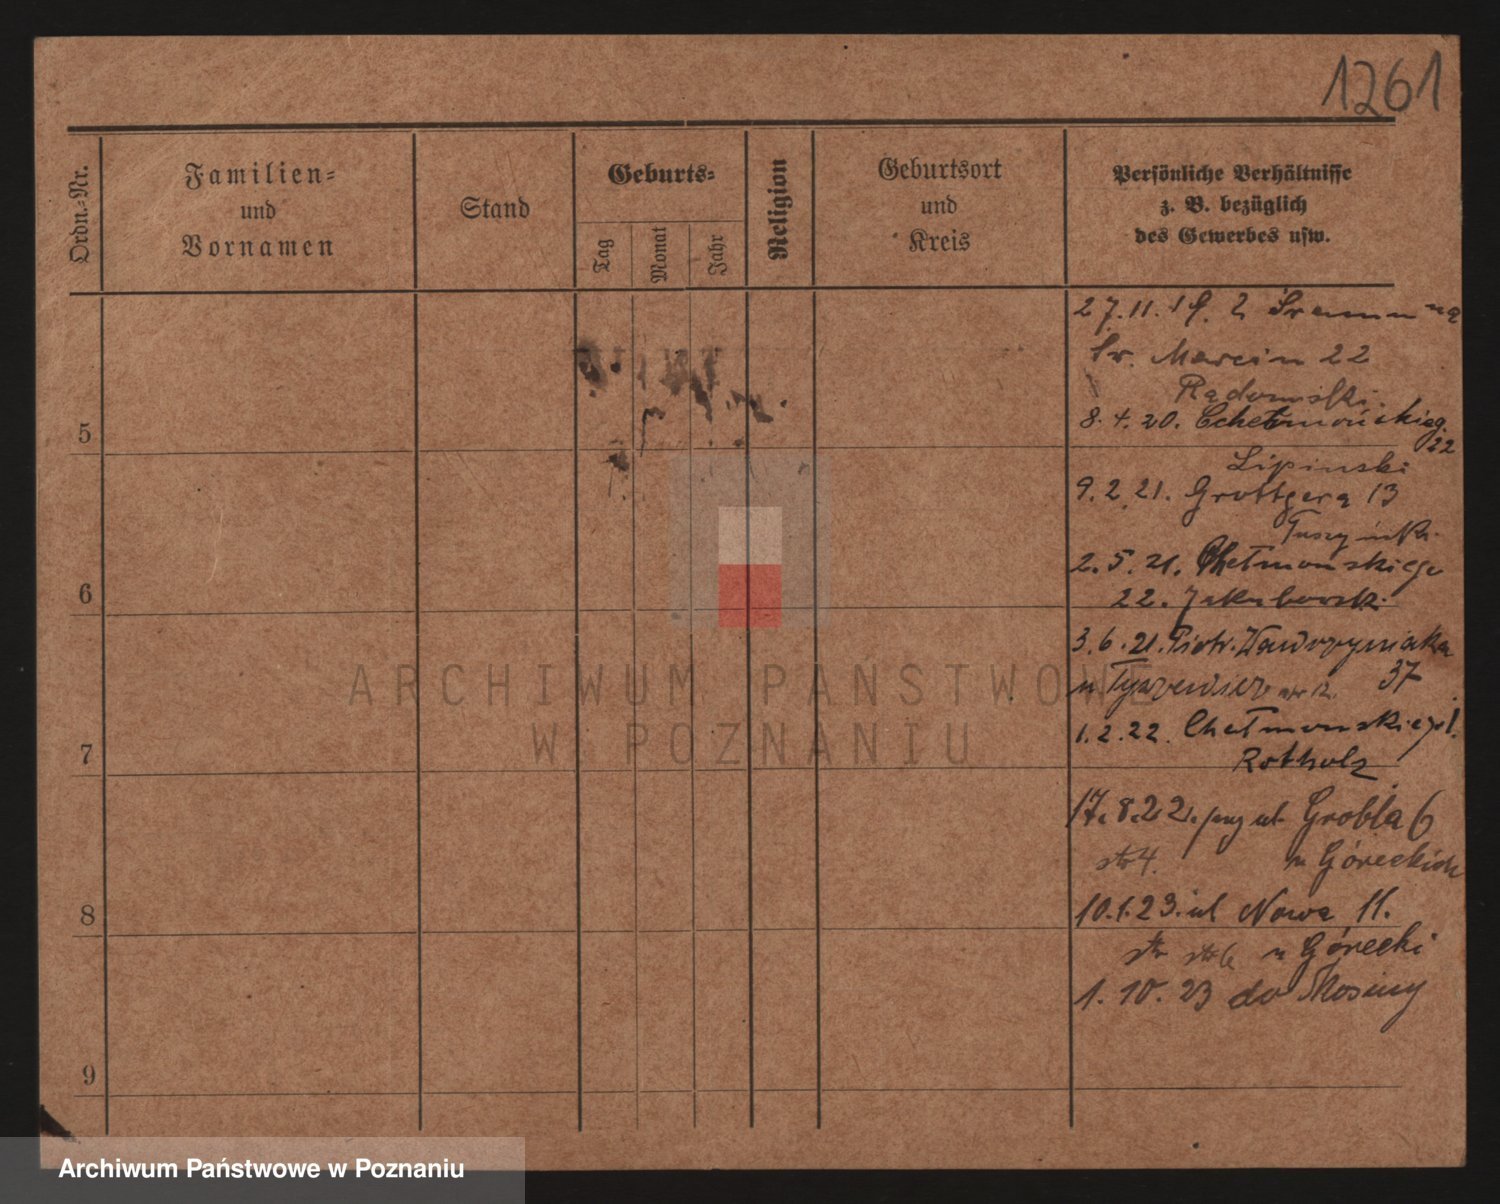 1261
Ordn.-Nr.
Familien-
und
Vornamen
Stand
Geburts-
Tag
Monat
Jahr
Religion
Geburtsort
und
Kreis
Persönliche Verhältnisse
z. B. bezüglich
des Gewerbes usw.
27.11.19. z Śremu na
Św. Marcin 22
Radomski.
5
8.4.20. Chełmońskieg.
22
Lipinski
9.2.21. Grottgera 13
2.5.21. Chełmonskiego
6
22. Jakubowski
3.6.21. Piotr. Wawrzyniaka
37
1.2.22. Chełmonskiego
7
Rotholz
17.8.22. przy ul Grobla 6
str 4. u Góreckich
8
10.1.23. ul Nowa 11.
u Górecki
1.10.23 do Mosiny
9
ARCHIWUM PAŃSTWOWE
W POZNANIU
Archiwum Państwowe w Poznaniu